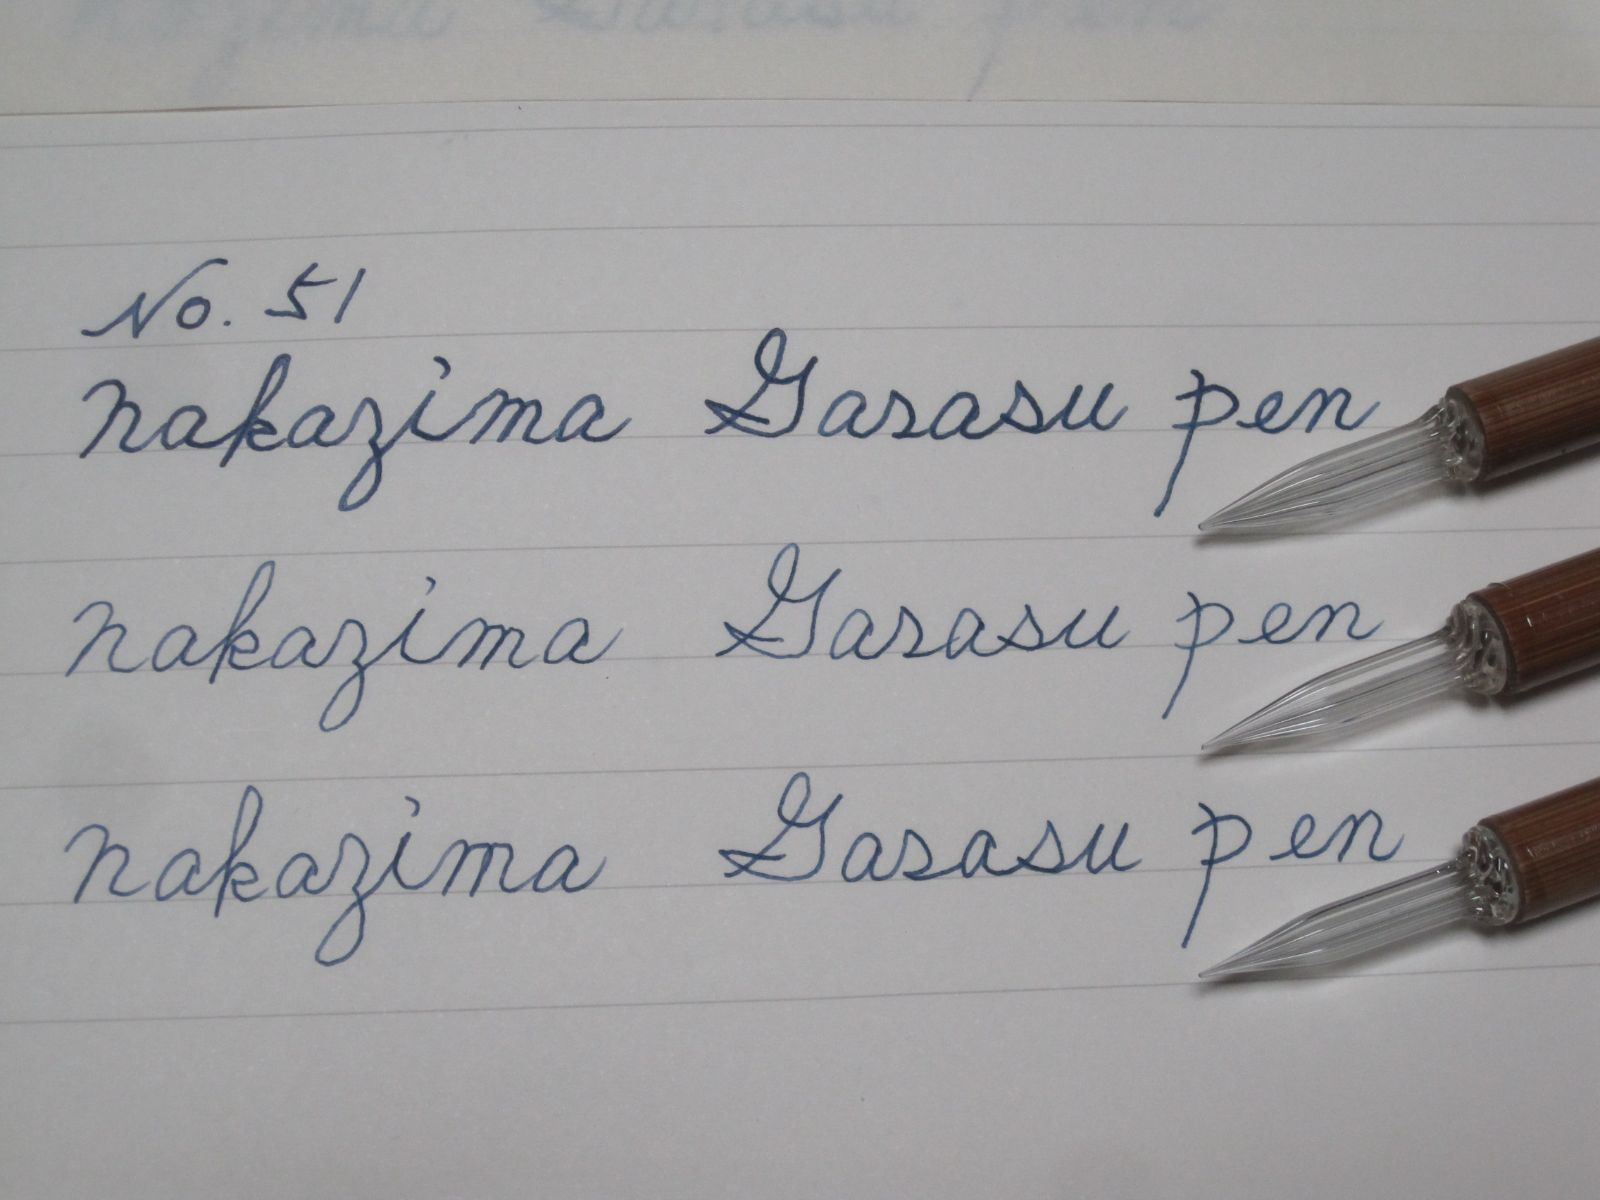 No. 51
nakazima Garasu pen
nakazima Garasu pen
nakazima Garasu pen